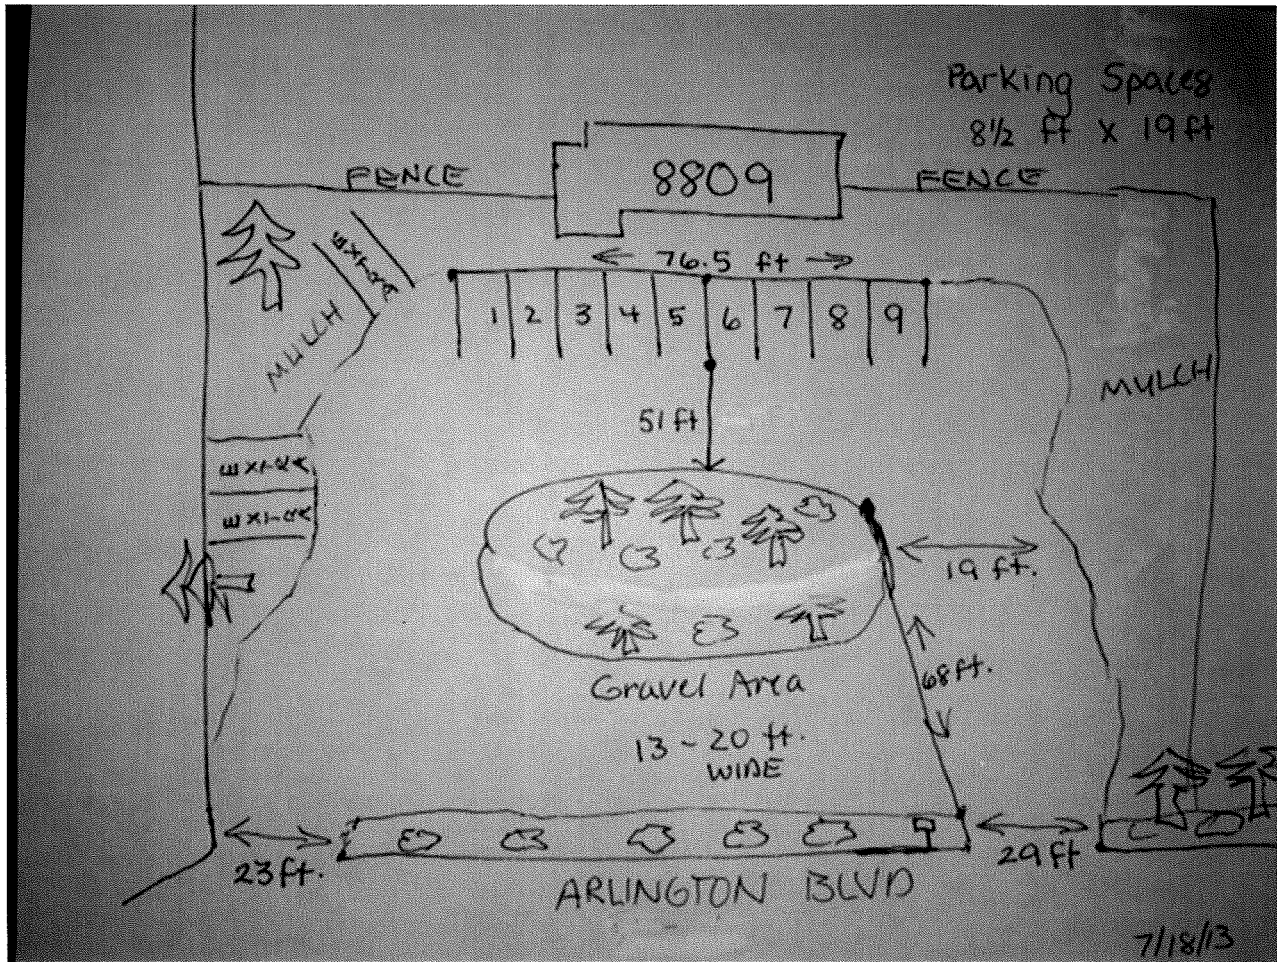 Parking Spaces
8½ ft x 19 ft
FENCE
8809
FENCE
76.5 ft
EXTRA
1 2 3 4 5 6 7 8 9
MULCH
MULCH
51 ft
EXTRA
EXTRA
19 ft.
68 ft.
Gravel Area
13 - 20 ft.
WIDE
23 ft.
29 ft
ARLINGTON BLVD
7/18/13